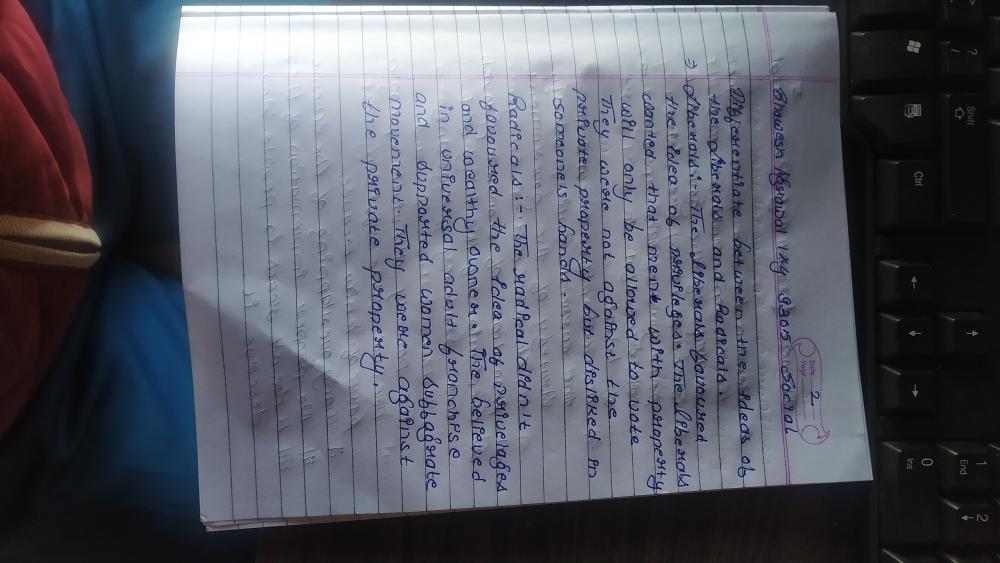 Date
Page 2
Bhawesh Agrawal IXG 9305 Social
Differentiate between the ideas of
the Liberals and Radicals.
⇒ Liberals:- The liberals favoured
the idea of privileges. The liberals
wanted that men with property
will only be allowed to vote
They were not against the
private property but desired in
someone's hands.
Radicals:- The radical didn't
favoured the idea of priverages
and wealthy owners. The believed
in universal adult franchise
and supported women subbagrate
movement. They were against
the private property.
Shift
Ctrl
?
/
>
.
1
End
2
0
Ins